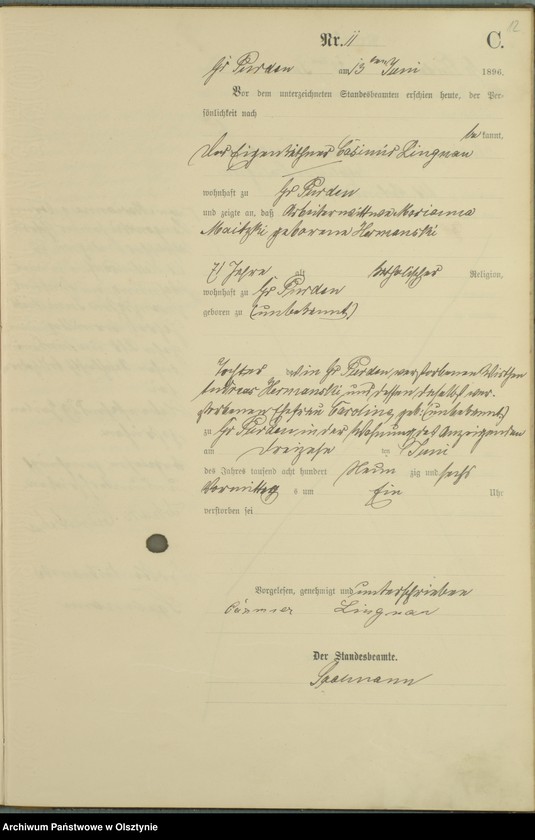 12
Nr. 11
C.
Gr Purden am 13ten Juni 1896.
Vor dem unterzeichneten Standesbeamten erschien heute, der Per-
sönlichkeit nach
be kannt,
der Eigenkäthner Casimir Lingnau
wohnhaft zu Gr Purden
und zeigte an, daß Arbeiterwittwe Marianna
geborene Hermanski
71 Jahre alt katholischer Religion,
wohnhaft zu Gr Purden
geboren zu (unbekannt)
Tochter in Gr Purden verstorbenen Wirthen
Andreas Hermanski und dessen daselbst ver-
storbenen Ehefrau Carolina geb. (unbekannt)
zu Gr Purden, in der Wohnung des Anzeigenden
am dreizehn ten Juni
des Jahres tausend acht hundert Neun zig und sechs
Vormittag s um Ein Uhr
verstorben sei
Vorgelesen, genehmigt und unterschrieben
Casimir Lingnau
Der Standesbeamte.